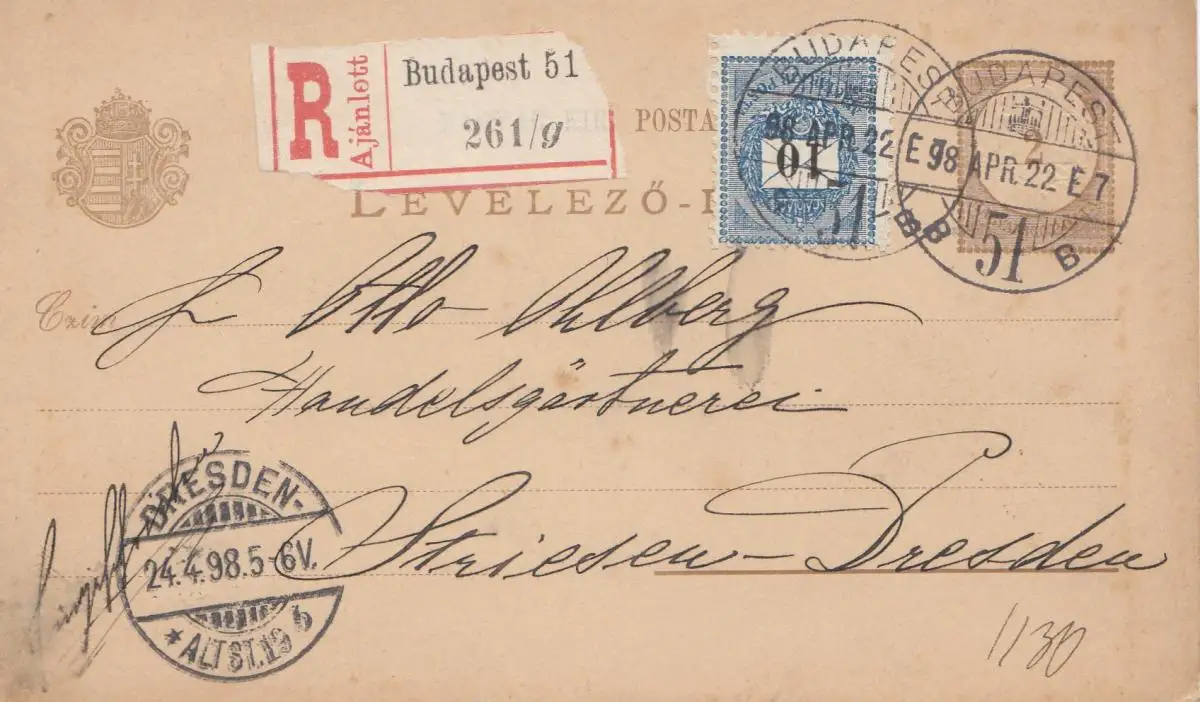 R
Ajánlott
Budapest 51
261/g
POSTA
LEVELEZŐ-
BUDAPEST
98 APR. 22 E
51
B
10
BUDAPEST
98 APR. 22 E 7
B 51 B
2
Czim
Otto Ohlberg
Handelsgärtnerei
Striesen-Dresden
DRESDEN-
24.4.98.5-6V.
* ALTST.19 b
1130